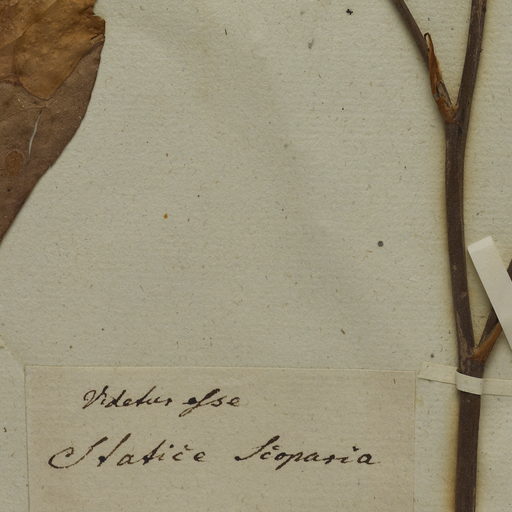 Videtur esse
Statice Scoparia